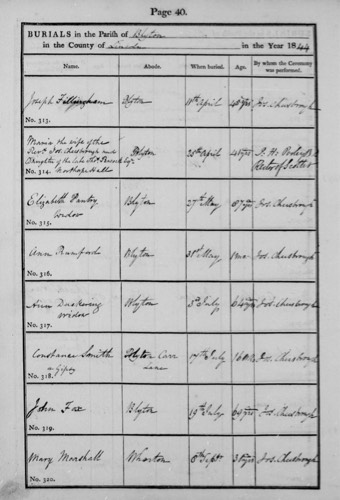 Page 40.
BURIALS in the Parish of Blyton
in the County of Lincoln in the Year 1844
Name. Abode. When buried. Age. By whom the Ceremony was performed.
Joseph Fillingham Blyton 11th April 48 yrs Jos. Cheesbrough
No. 313.
Maria the wife of the
Revd. Jos. Cheesbrough and Blyton 20th April 46 yrs
Daughter of the late Thos. Esqr.
No. 314. Northorpe Hall Rector of
Elizabeth Pantry Blyton 27th May 67 yrs Jos. Cheesbrough
widow
No. 315.
Ann Blyton 31st May Jos. Cheesbrough
No. 316.
Ann Duckering Blyton 3d July 64 yrs Jos. Cheesbrough
widow
No. 317.
Constance Smith Blyton Carr 17th July Jos. Cheesbrough
a Gipsy Lane
No. 318.
John Fox Blyton 19th July 69 yrs Jos. Cheesbrough
No. 319.
Mary Marshall Wharton 6th Septr Jos. Cheesbrough
No. 320.